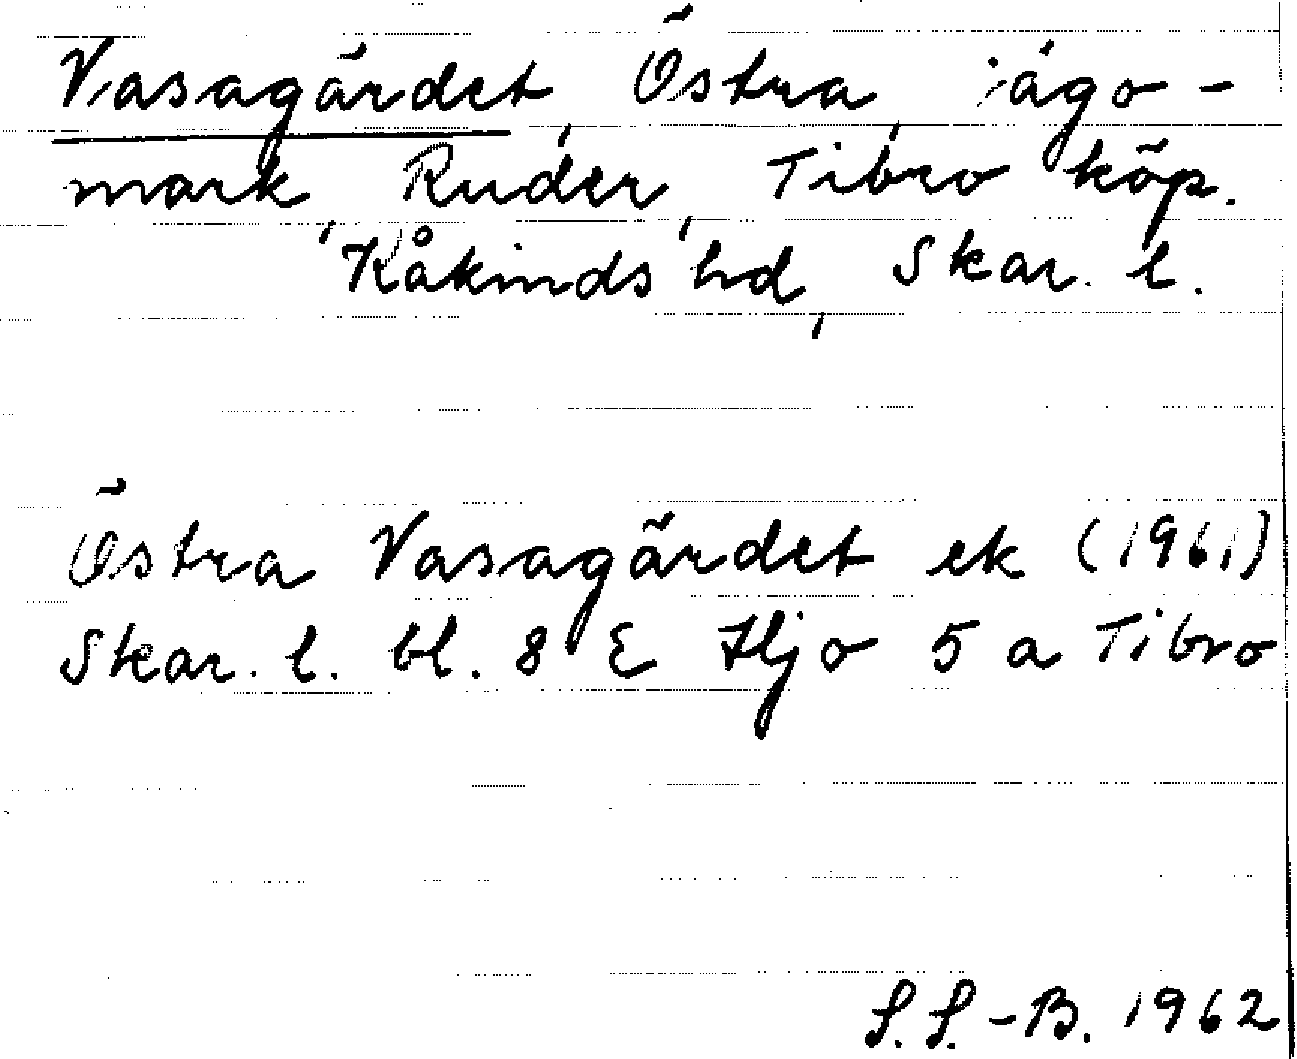 Vasagärdet, Östra, ägo-
mark, Ruder, Tibro köp.
Kåkinds hd, Skar. l.
Östra Vasagärdet ek (1961)
Skar. l. bl. 8 E Hjo 5 a Tibro
S.S.-B. 1962